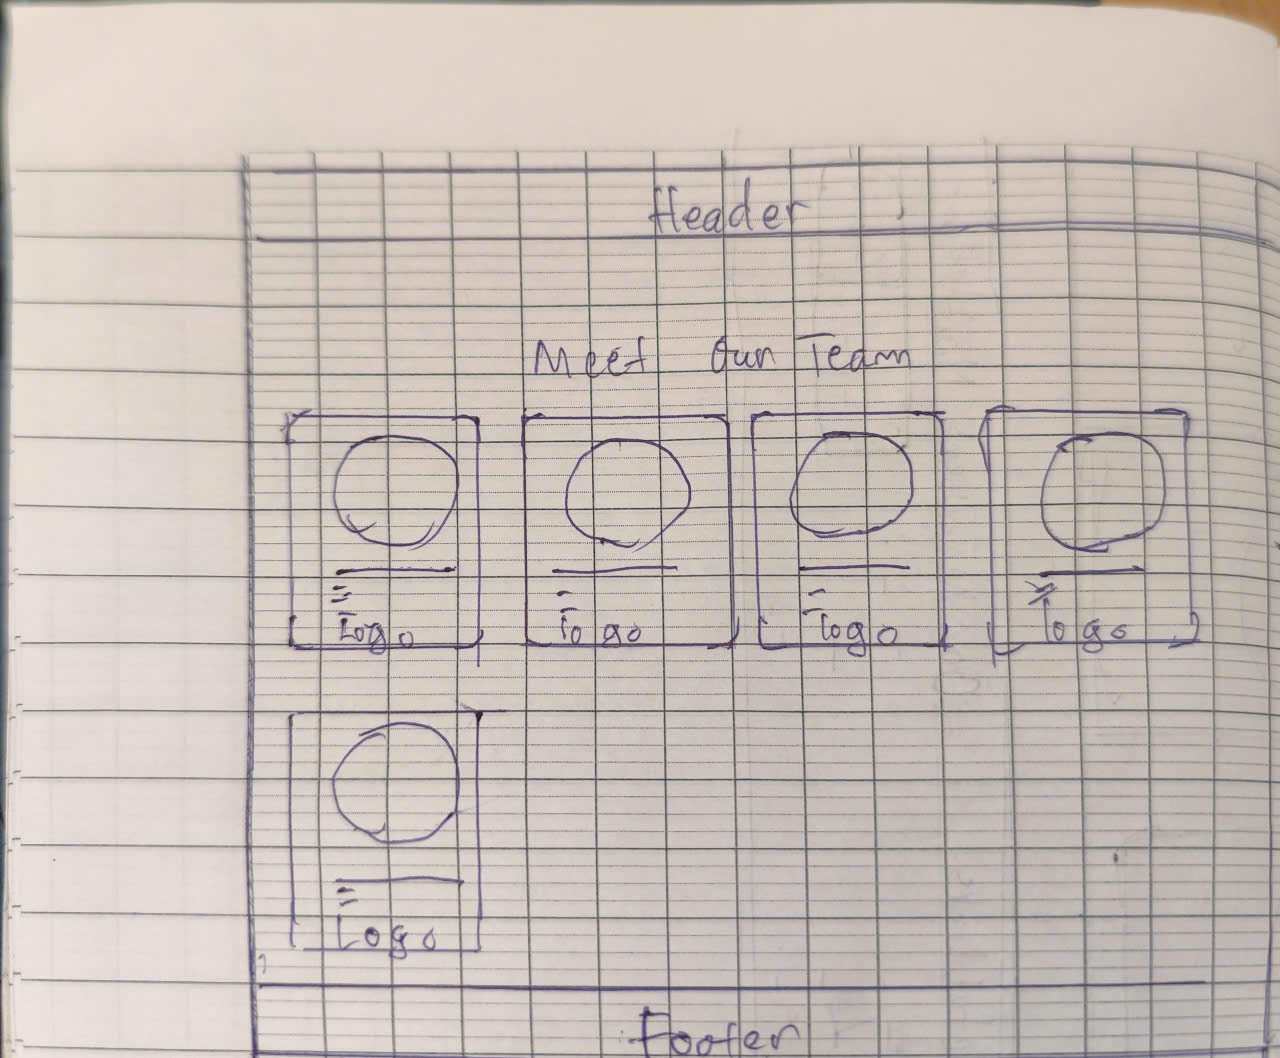 Header
Meet Our Team
Logo Logo Logo Logo
Logo
Footer